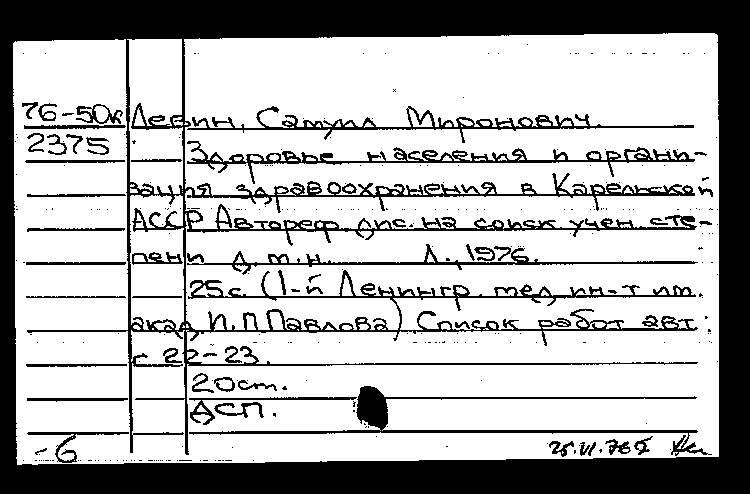 76-50к Левин, Самуил Миронович.
2375 Здоровье населения и органи-
зация здравоохранения в Карельской
АССР Автореф. дис. на соиск учен. сте-
пени д.м.н. Л., 1976.
25с. (1-й Ленингр. мед. ин-т им.
акад. И.П.Павлова) Список работ авт:
с 22-23.
20см.
ДСП.
-6 25.VI.76